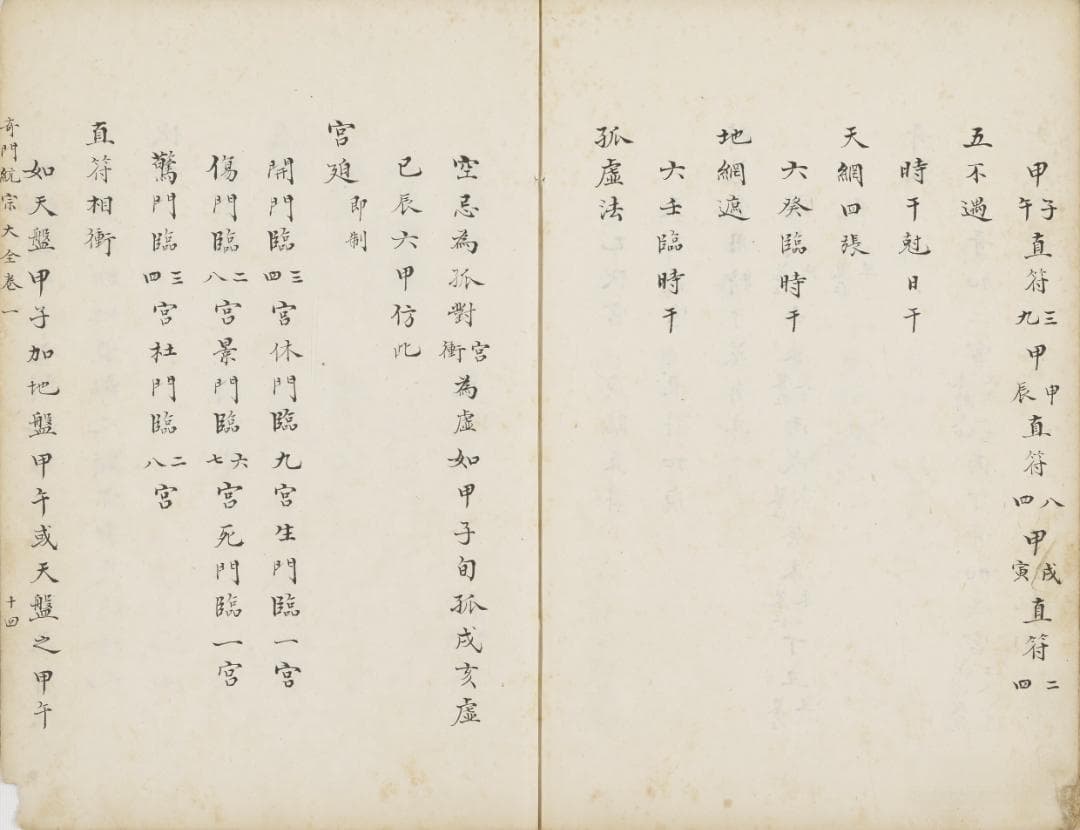 甲子午直符三九甲甲辰直符八四甲戌寅直符二四
五不遇
時干尅日干
天網四張
六癸臨時干
地網遮
六壬臨時干
孤虛法
空忌為孤對宮衝為虛如甲子旬孤戌亥虛
巳辰六甲仿此
宮廹即制
開門臨三四宮休門臨九宮生門臨一宮
傷門臨二八宮景門臨六七宮死門臨一宮
驚門臨三四宮杜門臨二八宮
直符相衝
如天盤甲子加地盤甲午或天盤之甲午
奇門統宗大全卷一 十四